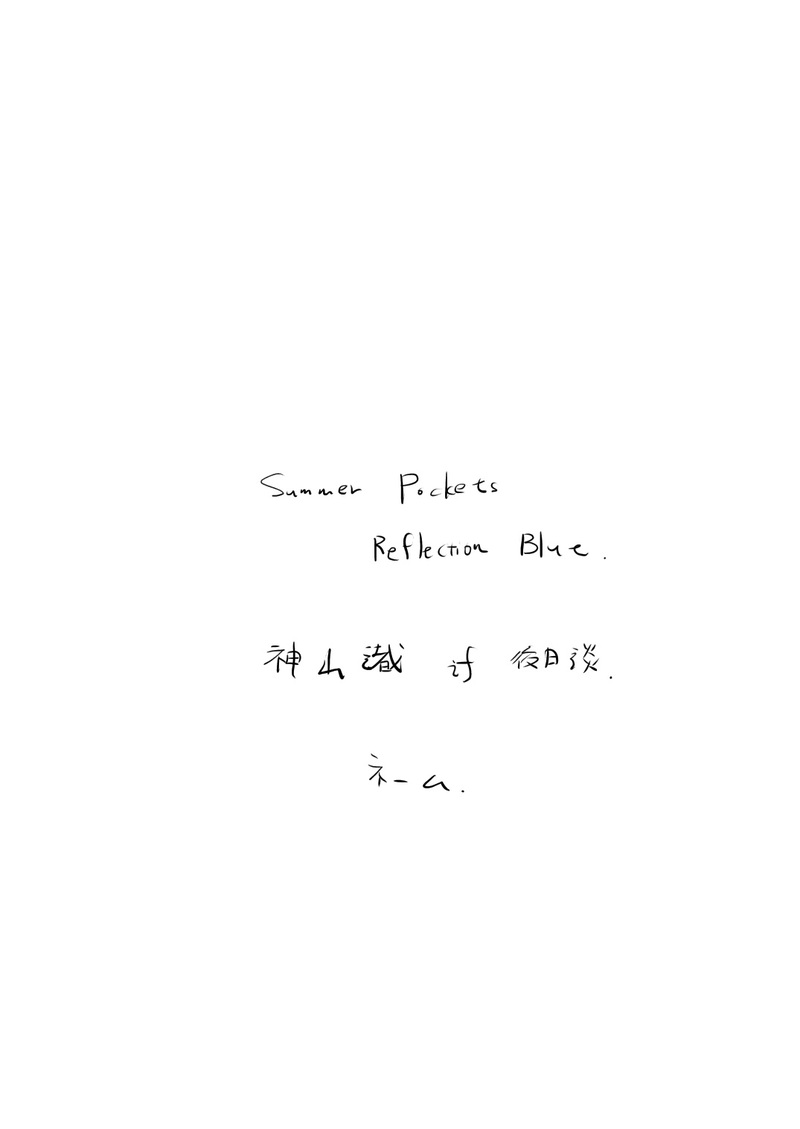 Summer Pockets
Reflection Blue.
神山識 if 後日談.
ネーム.